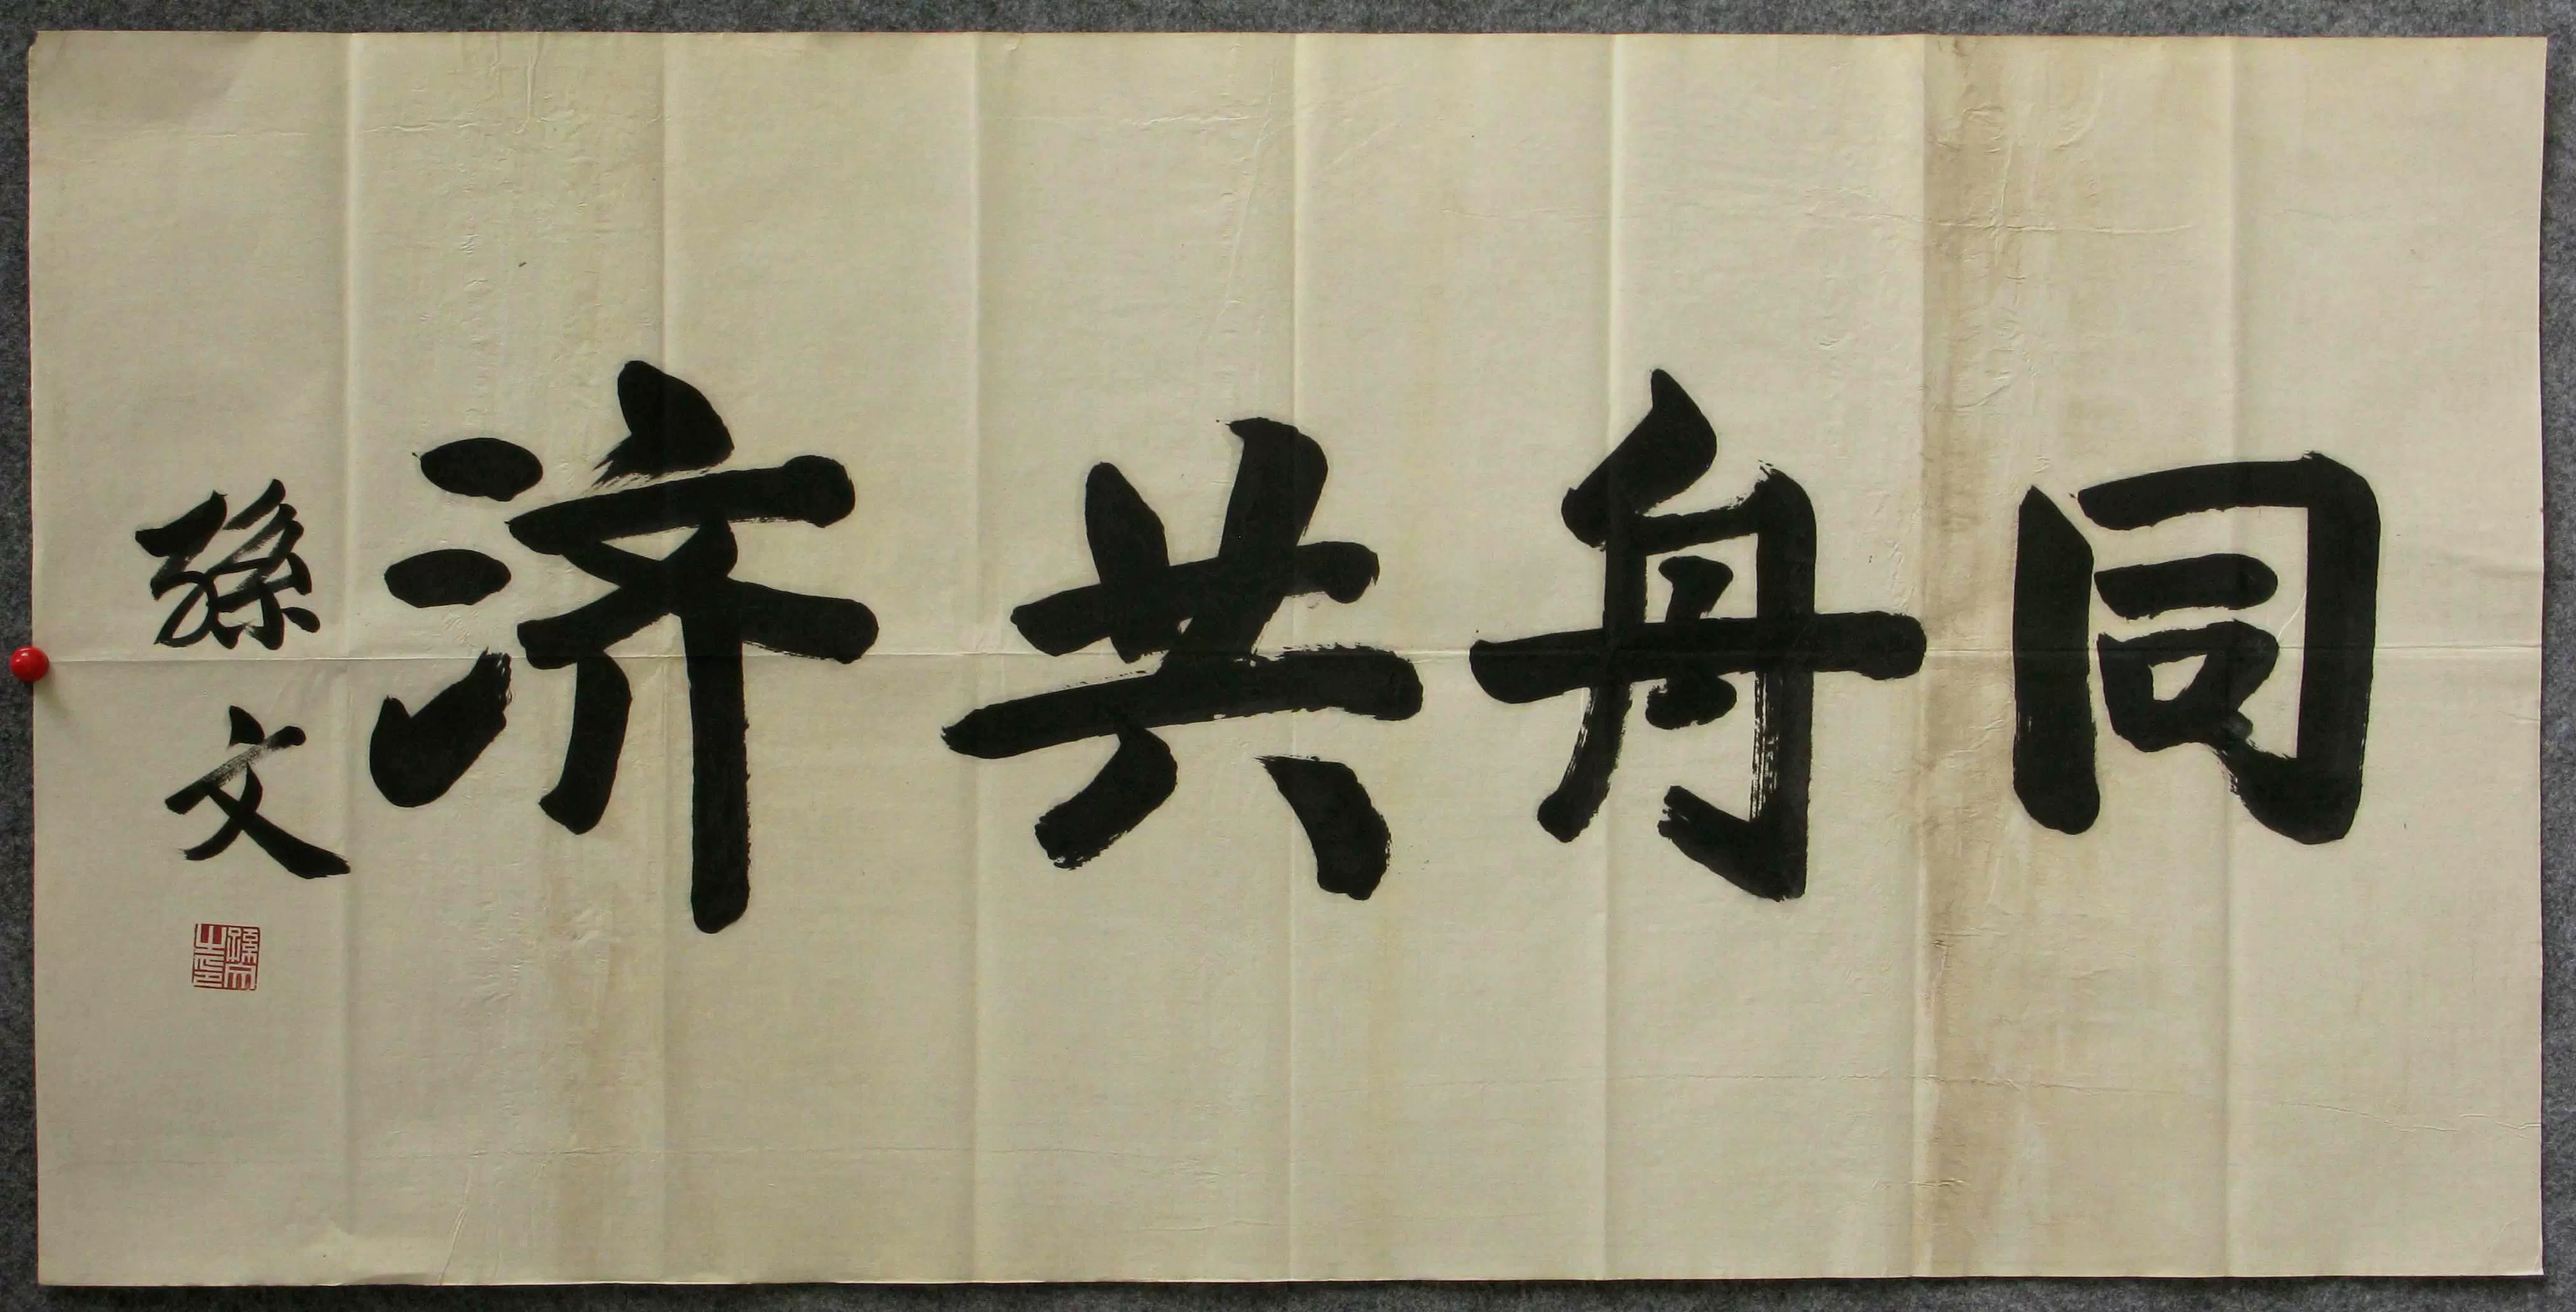 同舟共济
孫文
孫文之印